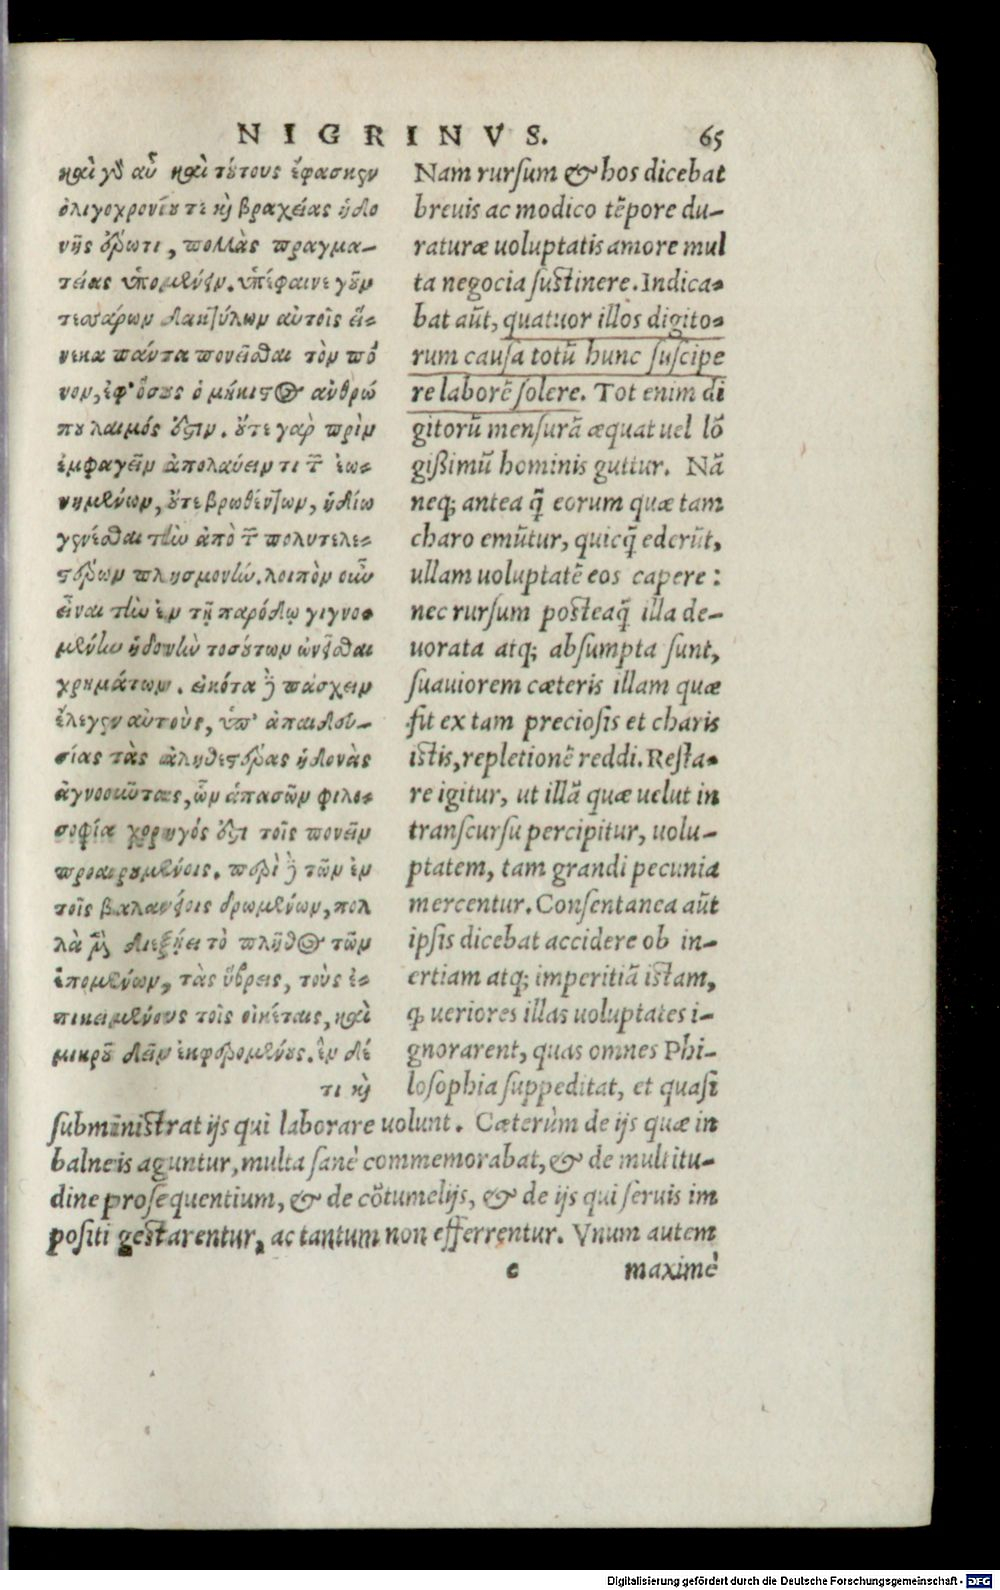 NIGRINVS. 65
καὶ γὰρ αὖ καὶ τούτους ἔφασκεν
ὀλιγοχρονίου τε καὶ βραχείας ἡδο
νῆς ἔρωτι, πολλὰς πραγμα-
τείας ὑπομένειν. ὑπέφαινε γοῦν
τεσσάρων δακτύλων αὐτοῖς εἵ-
νεκα πάντα πονεῖσθαι τὸν πό
νον, ἐφ' ὅσους ὁ μήκιστος ἀνθρώ
που λαιμός ἐστιν. οὔτε γὰρ πρὶν
ἐμφαγεῖν ἀπολαύειν τι τῶν ἐω-
νημένων, οὔτε βρωθέντων, ἡδίω
γενέσθαι τὴν ἀπὸ τῶν πολυτελε-
στέρων πλησμονήν. λοιπὸν οὖν
εἶναι τὴν ἐν τῇ παρόδῳ γιγνο-
μένην ἡδονὴν τοσούτων ὠνεῖσθαι
χρημάτων. εἰκότα δὲ πάσχειν
ἔλεγεν αὐτοὺς, ὑπ' ἀπαιδευ-
σίας τὰς ἀληθεστέρας ἡδονὰς
ἀγνοοῦντας, ὧν ἁπασῶν φιλο-
σοφία χορηγός ἐστι τοῖς πονεῖν
προαιρουμένοις. περὶ δὲ τῶν ἐν
τοῖς βαλανείοις δρωμένων, πολ
λὰ μὲν διεξῄει τὸ πλῆθος τῶν
ἑπομένων, τὰς ὕβρεις, τοὺς ἐ-
πικειμένους τοῖς οἰκέταις, καὶ
μικροῦ δεῖν ἐκφερομένους. ἓν δέ
τι καὶ
Nam rursum & hos dicebat
breuis ac modico tẽpore du-
raturæ uoluptatis amore mul
ta negocia sustinere. Indica-
bat aũt, quatuor illos digito-
rum causa totũ hunc suscipe
re laborẽ solere. Tot enim di
gitorũ mensurã æquat uel lõ
gißimũ hominis guttur. Nã
neq; antea q̃ eorum quæ tam
charo emũtur, quicq̃ ederũt,
ullam uoluptatẽ eos capere:
nec rursum posteaq̃ illa de-
uorata atq; absumpta sunt,
suauiorem cæteris illam quæ
fit ex tam preciosis et charis
istis, repletionẽ reddi. Resta-
re igitur, ut illã quæ uelut in
transcursu percipitur, uolu-
ptatem, tam grandi pecunia
mercentur. Consentanea aũt
ipsis dicebat accidere ob in-
ertiam atq; imperitiã istam,
ꝙ ueriores illas uoluptates i-
gnorarent, quas omnes Phi-
losophia suppeditat, et quasi
subministrat ijs qui laborare uolunt. Cæterùm de ijs quæ in
balneis aguntur, multa sanè commemorabat, & de multitu-
dine prosequentium, & de cõtumelijs, & de ijs qui seruis im
positi gestarentur, ac tantum non efferrentur. Vnum autem
c maximè
Digitalisierung gefördert durch die Deutsche Forschungsgemeinschaft - DFG